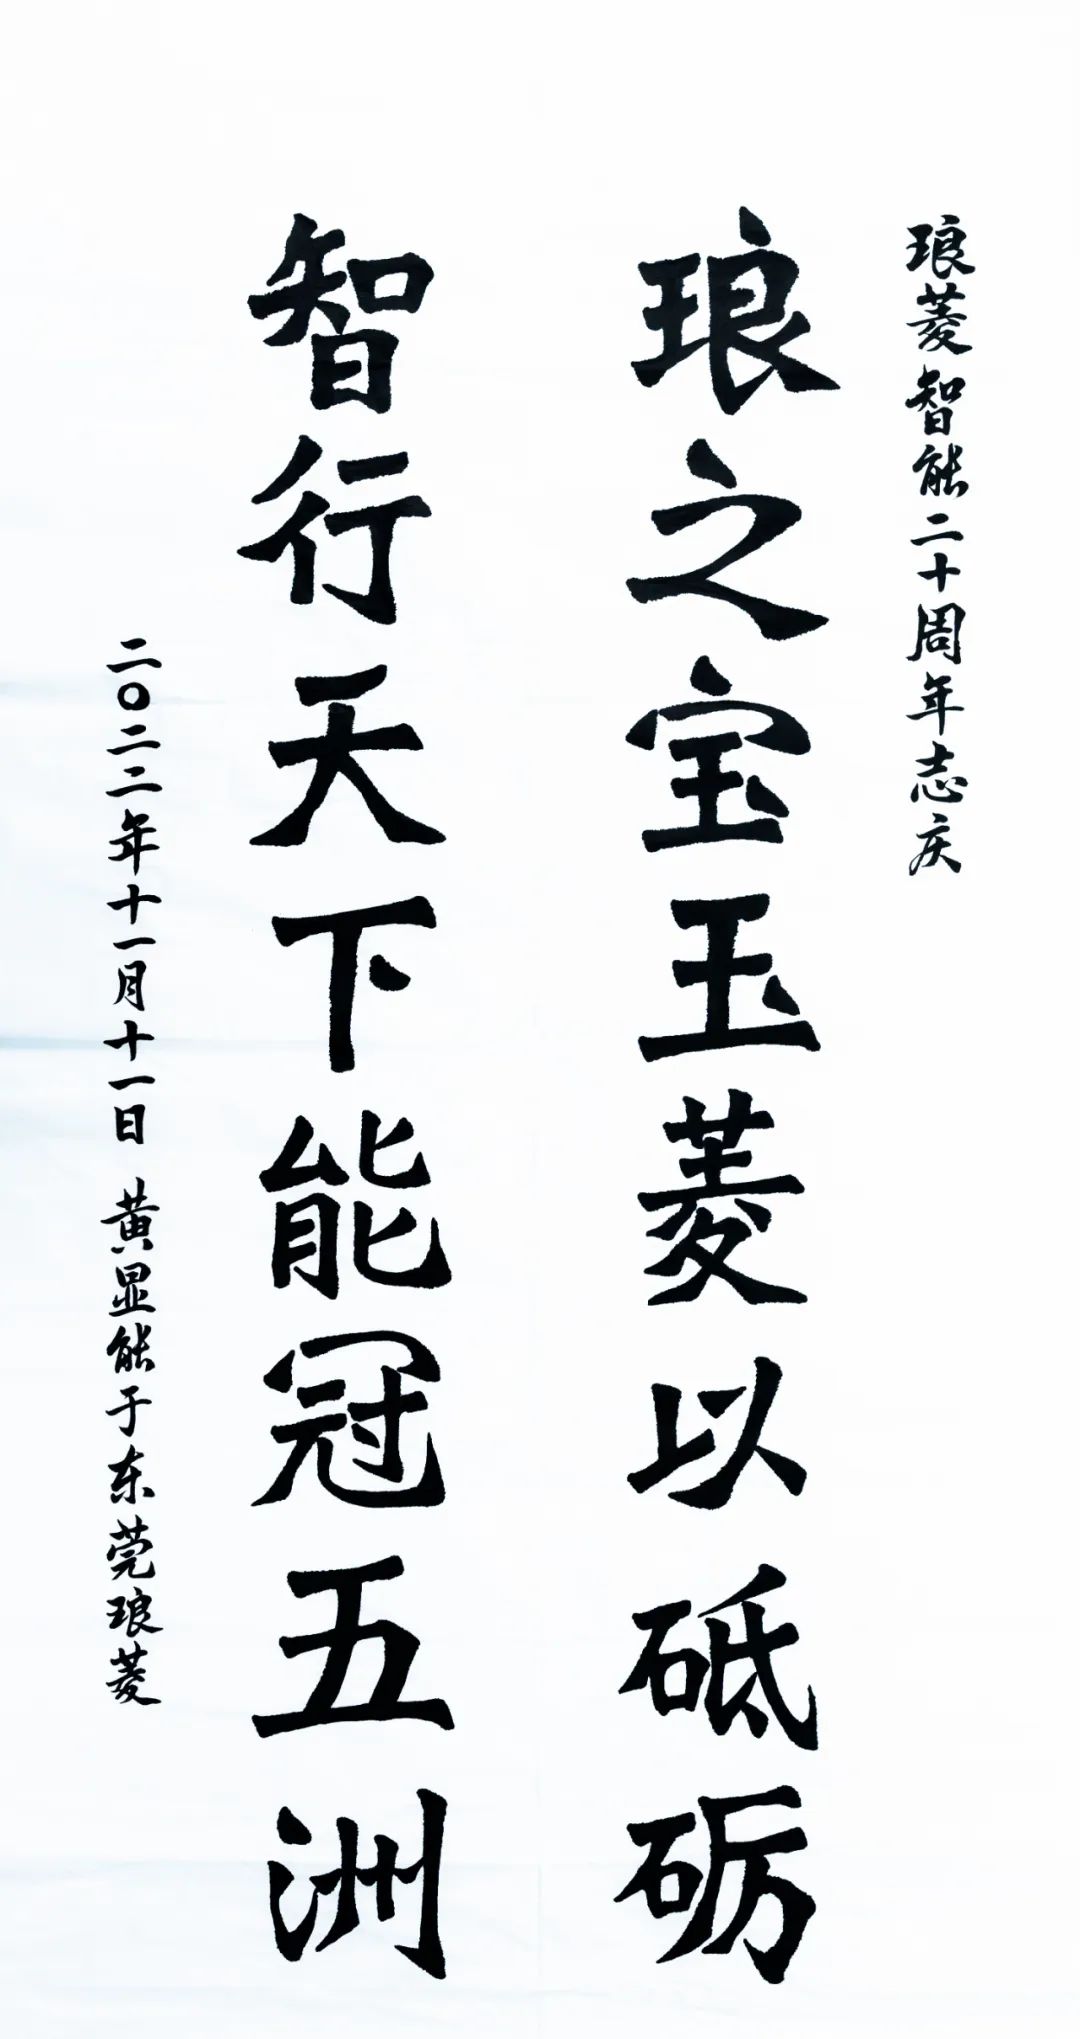 琅菱智能二十周年志庆
琅之宝玉菱以砥砺
智行天下能冠五洲
二〇二二年十一月十一日 黄显能于东莞琅菱